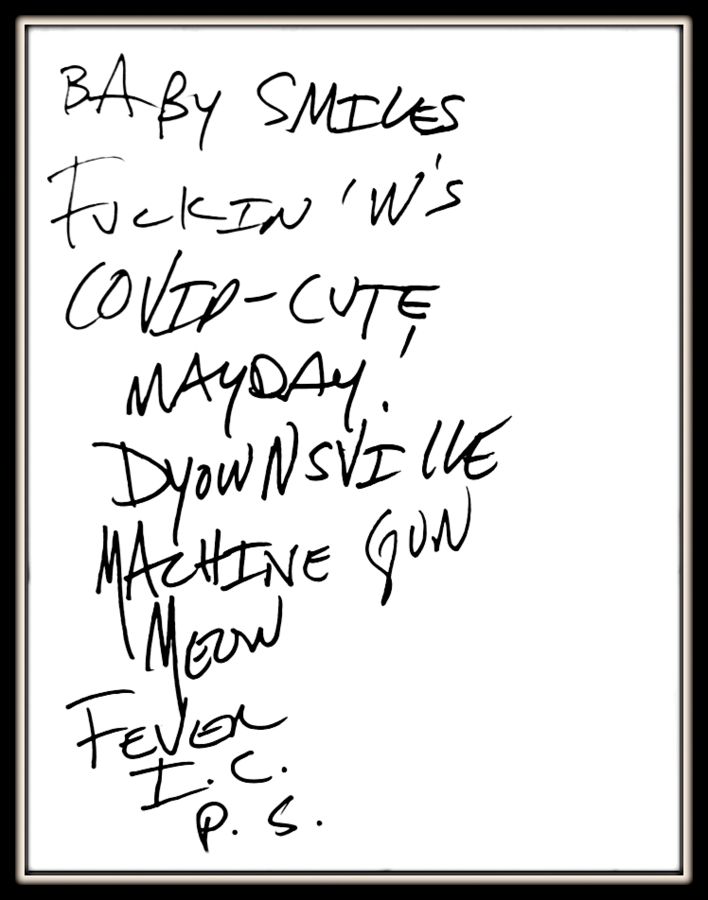 BABY SMILES
FUCKIN 'W'S
COVID-CUTE
MAYDAY!
DYOWNSVILLE
MACHINE GUN
MEOW
FEVER
I.C.
P.S.